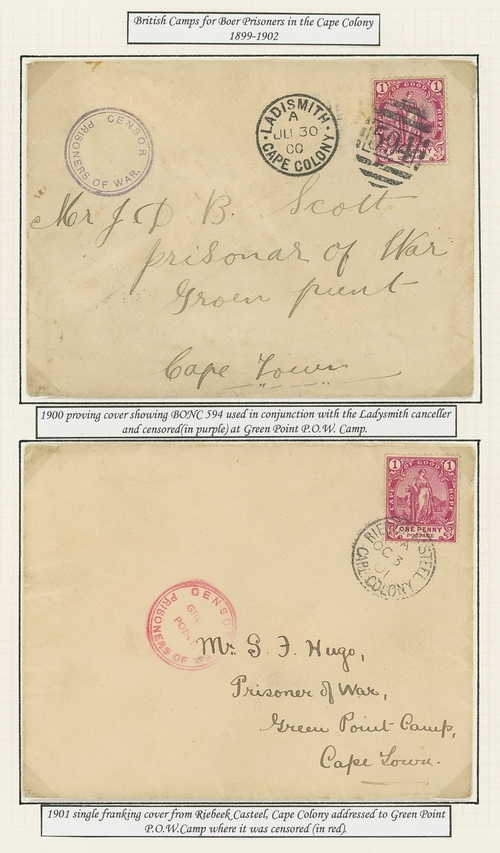 British Camps for Boer Prisoners in the Cape Colony
1899-1902
CENSOR
PRISONERS OF WAR.
LADISMITH
A
JU 30
00
CAPE COLONY
1 OF GOOD 1
HOPE
594
Mr J. D B. Scott
prisonar of War
Groen punt
Cape Town
1900 proving cover showing BONC 594 used in conjunction with the Ladysmith canceller
and censored(in purple) at Green Point P.O.W. Camp.
1 OF GOOD 1
CAPE HOPE
ONE PENNY
POSTAGE
A
OC 3
01
CAPE COLONY
CENSO
PRISONERS OF
Mr. S. F. Hugo,
Prisoner of War,
Green Point Camp,
Cape Town.
1901 single franking cover from Riebeek Casteel, Cape Colony addressed to Green Point
P.O.W.Camp where it was censored (in red).